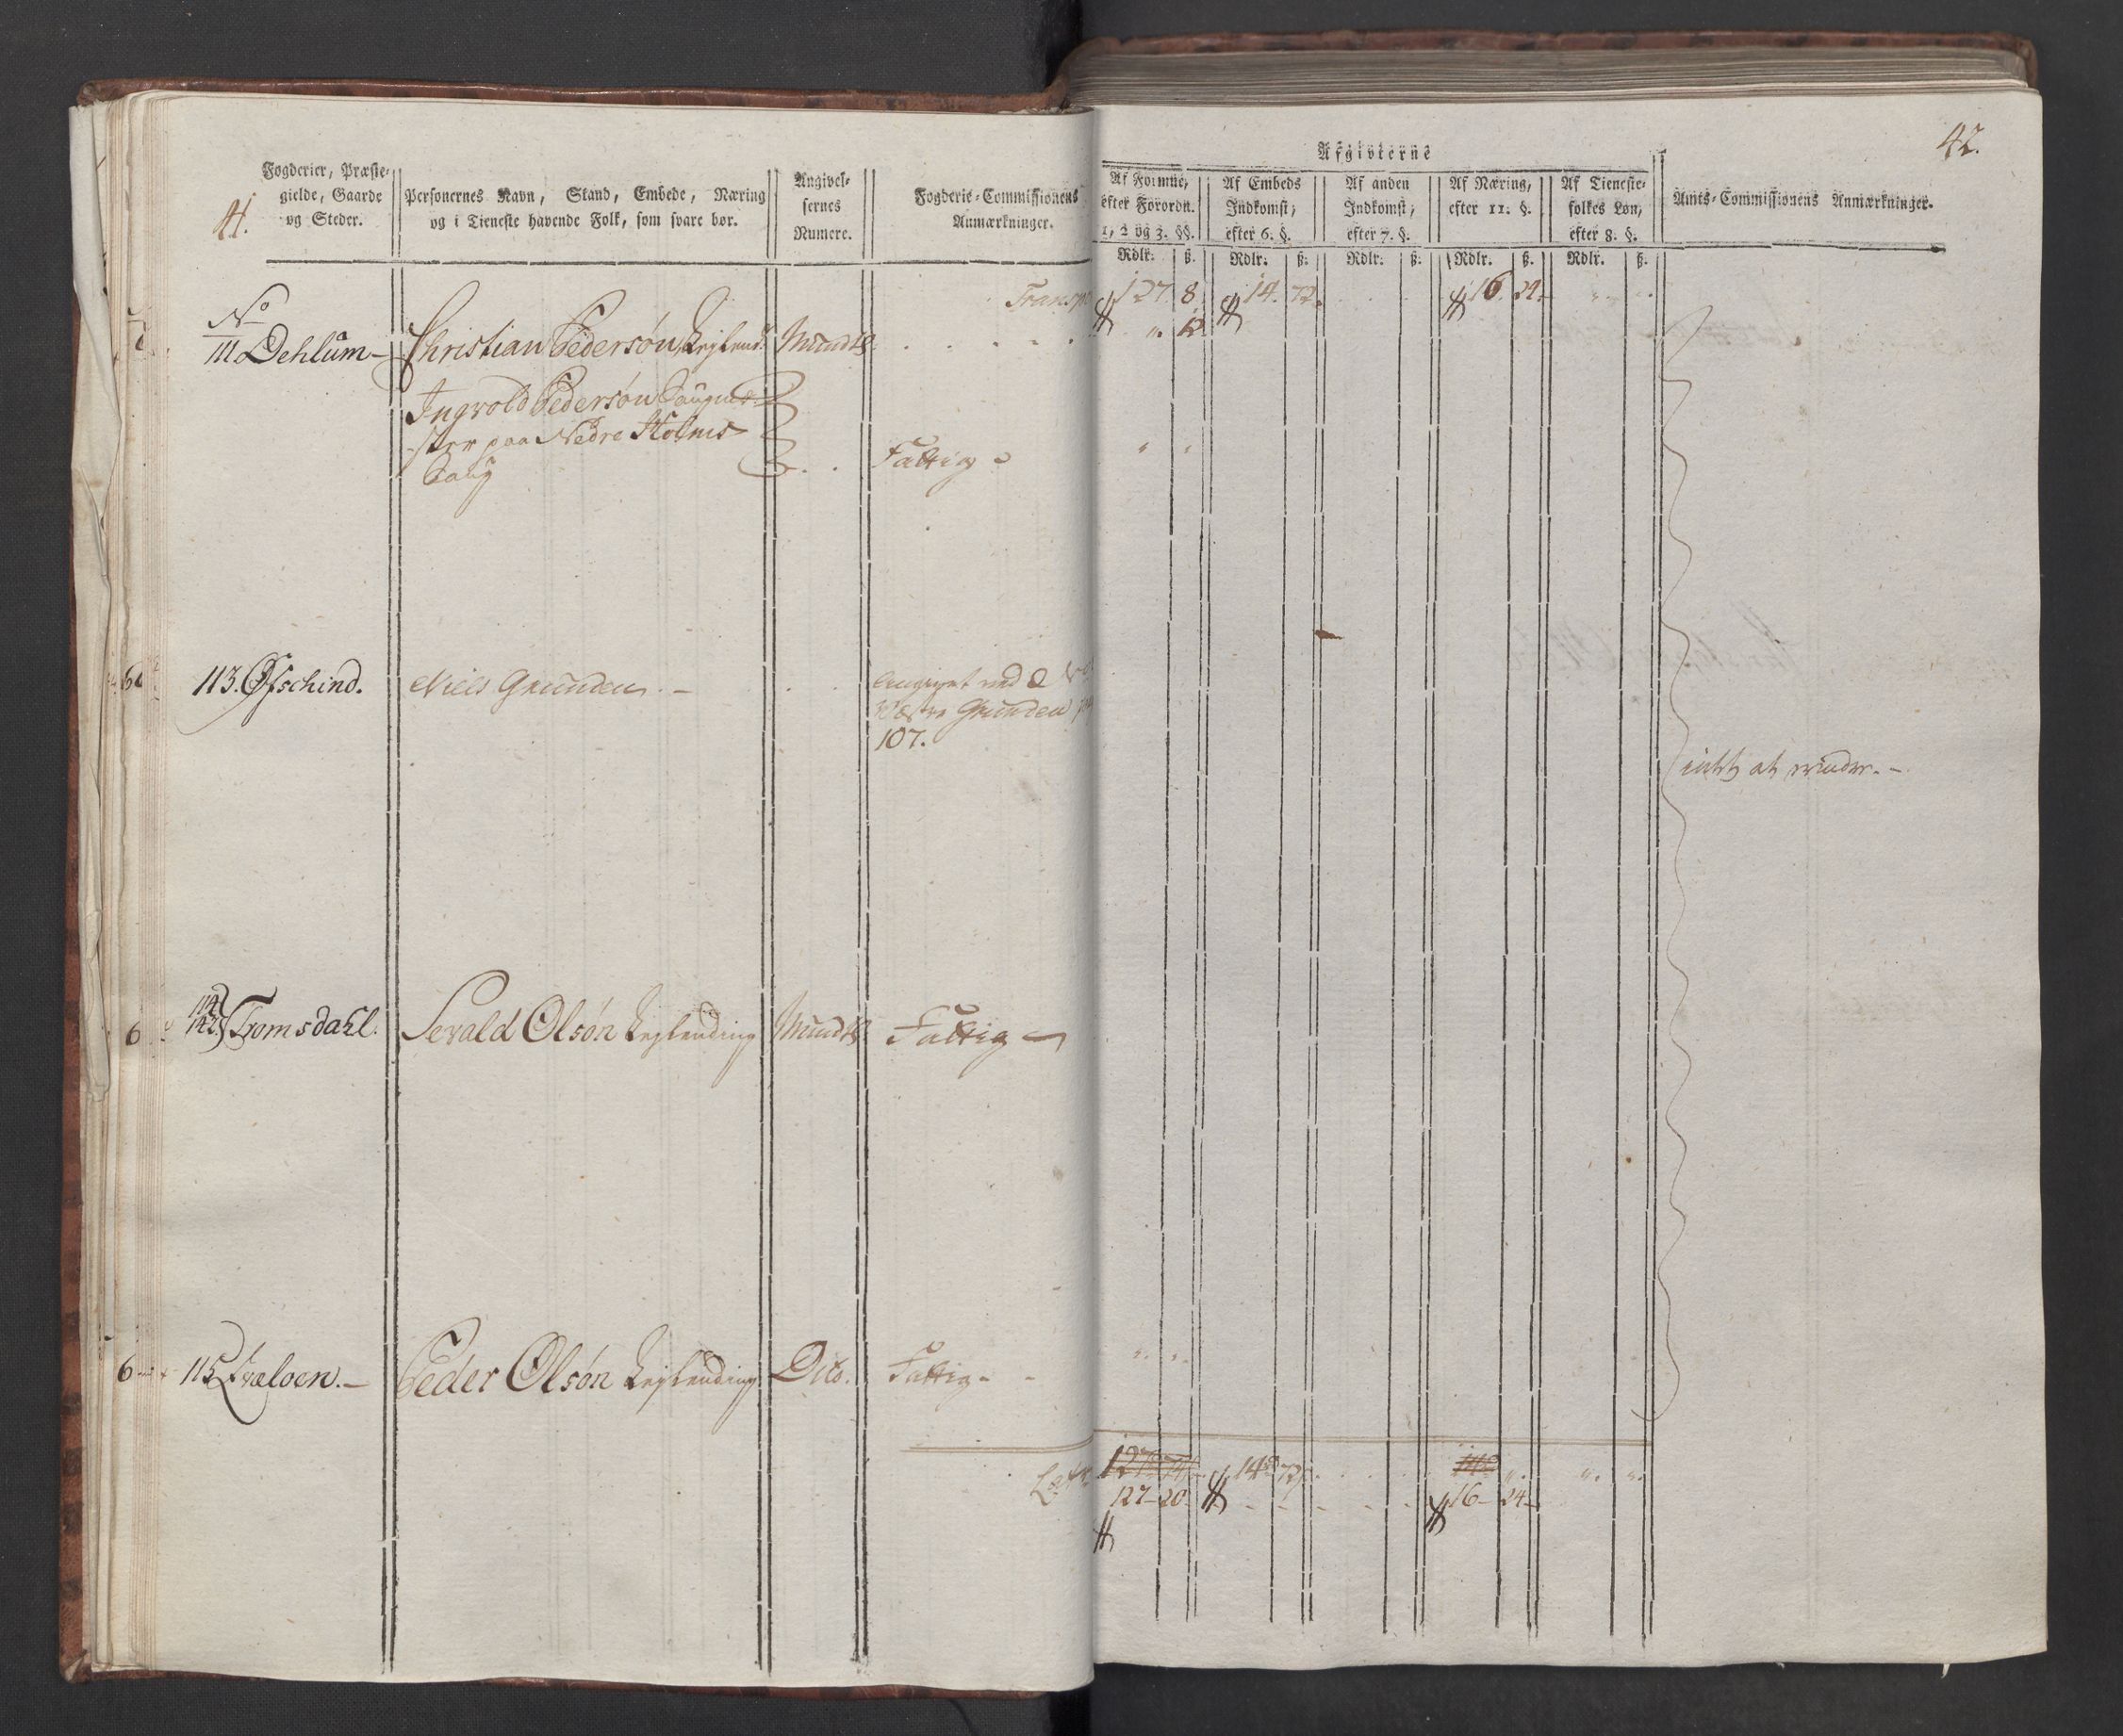 41.
Fogderier, Præste-
gielde, Gaarde
og Steder.
Personernes Navn, Stand, Embede, Næring
og i Tieneste havende Folk, som svare bør.
Angivel-
sernes
Numere.
Fogderie-Commissionens
Anmærkninger.
Transp
No
111 Dehlum - Christian Pedersøn, Leylend: Mundtl.
Ingvold Pedersøn Saugme-
ster paa Nedre Holms
Saug
Fattig
113. Øfschind. Niels Grunden. -
Angivet ved
Grunden
107.
114
142 Tromsdahl. Sevald Olsøn Leylending Mundtl. Fattig
115 Qvæloen. - Peder Olsøn Leylending Dito. Fattig -
Latr
42.
Afgivterne
Af Formue,
efter Forordn.
1, 2 og 3. §§.
Af Embeds
Indkomst,
efter 6. §.
Af anden
Indkomst,
efter 7. §.
Af Næring,
efter 11. §.
Af Tieneste-
folkes Løn,
efter 8. §.
Amts-Commissionens Anmærkninger.
Rdlr. ß. Rdlr. ß. Rdlr. ß. Rdlr. ß. Rdlr. ß.
127 8 14. 72. 16. 24.
" 12
intet at erindre. -
14 72
127 - 20 16 - 24